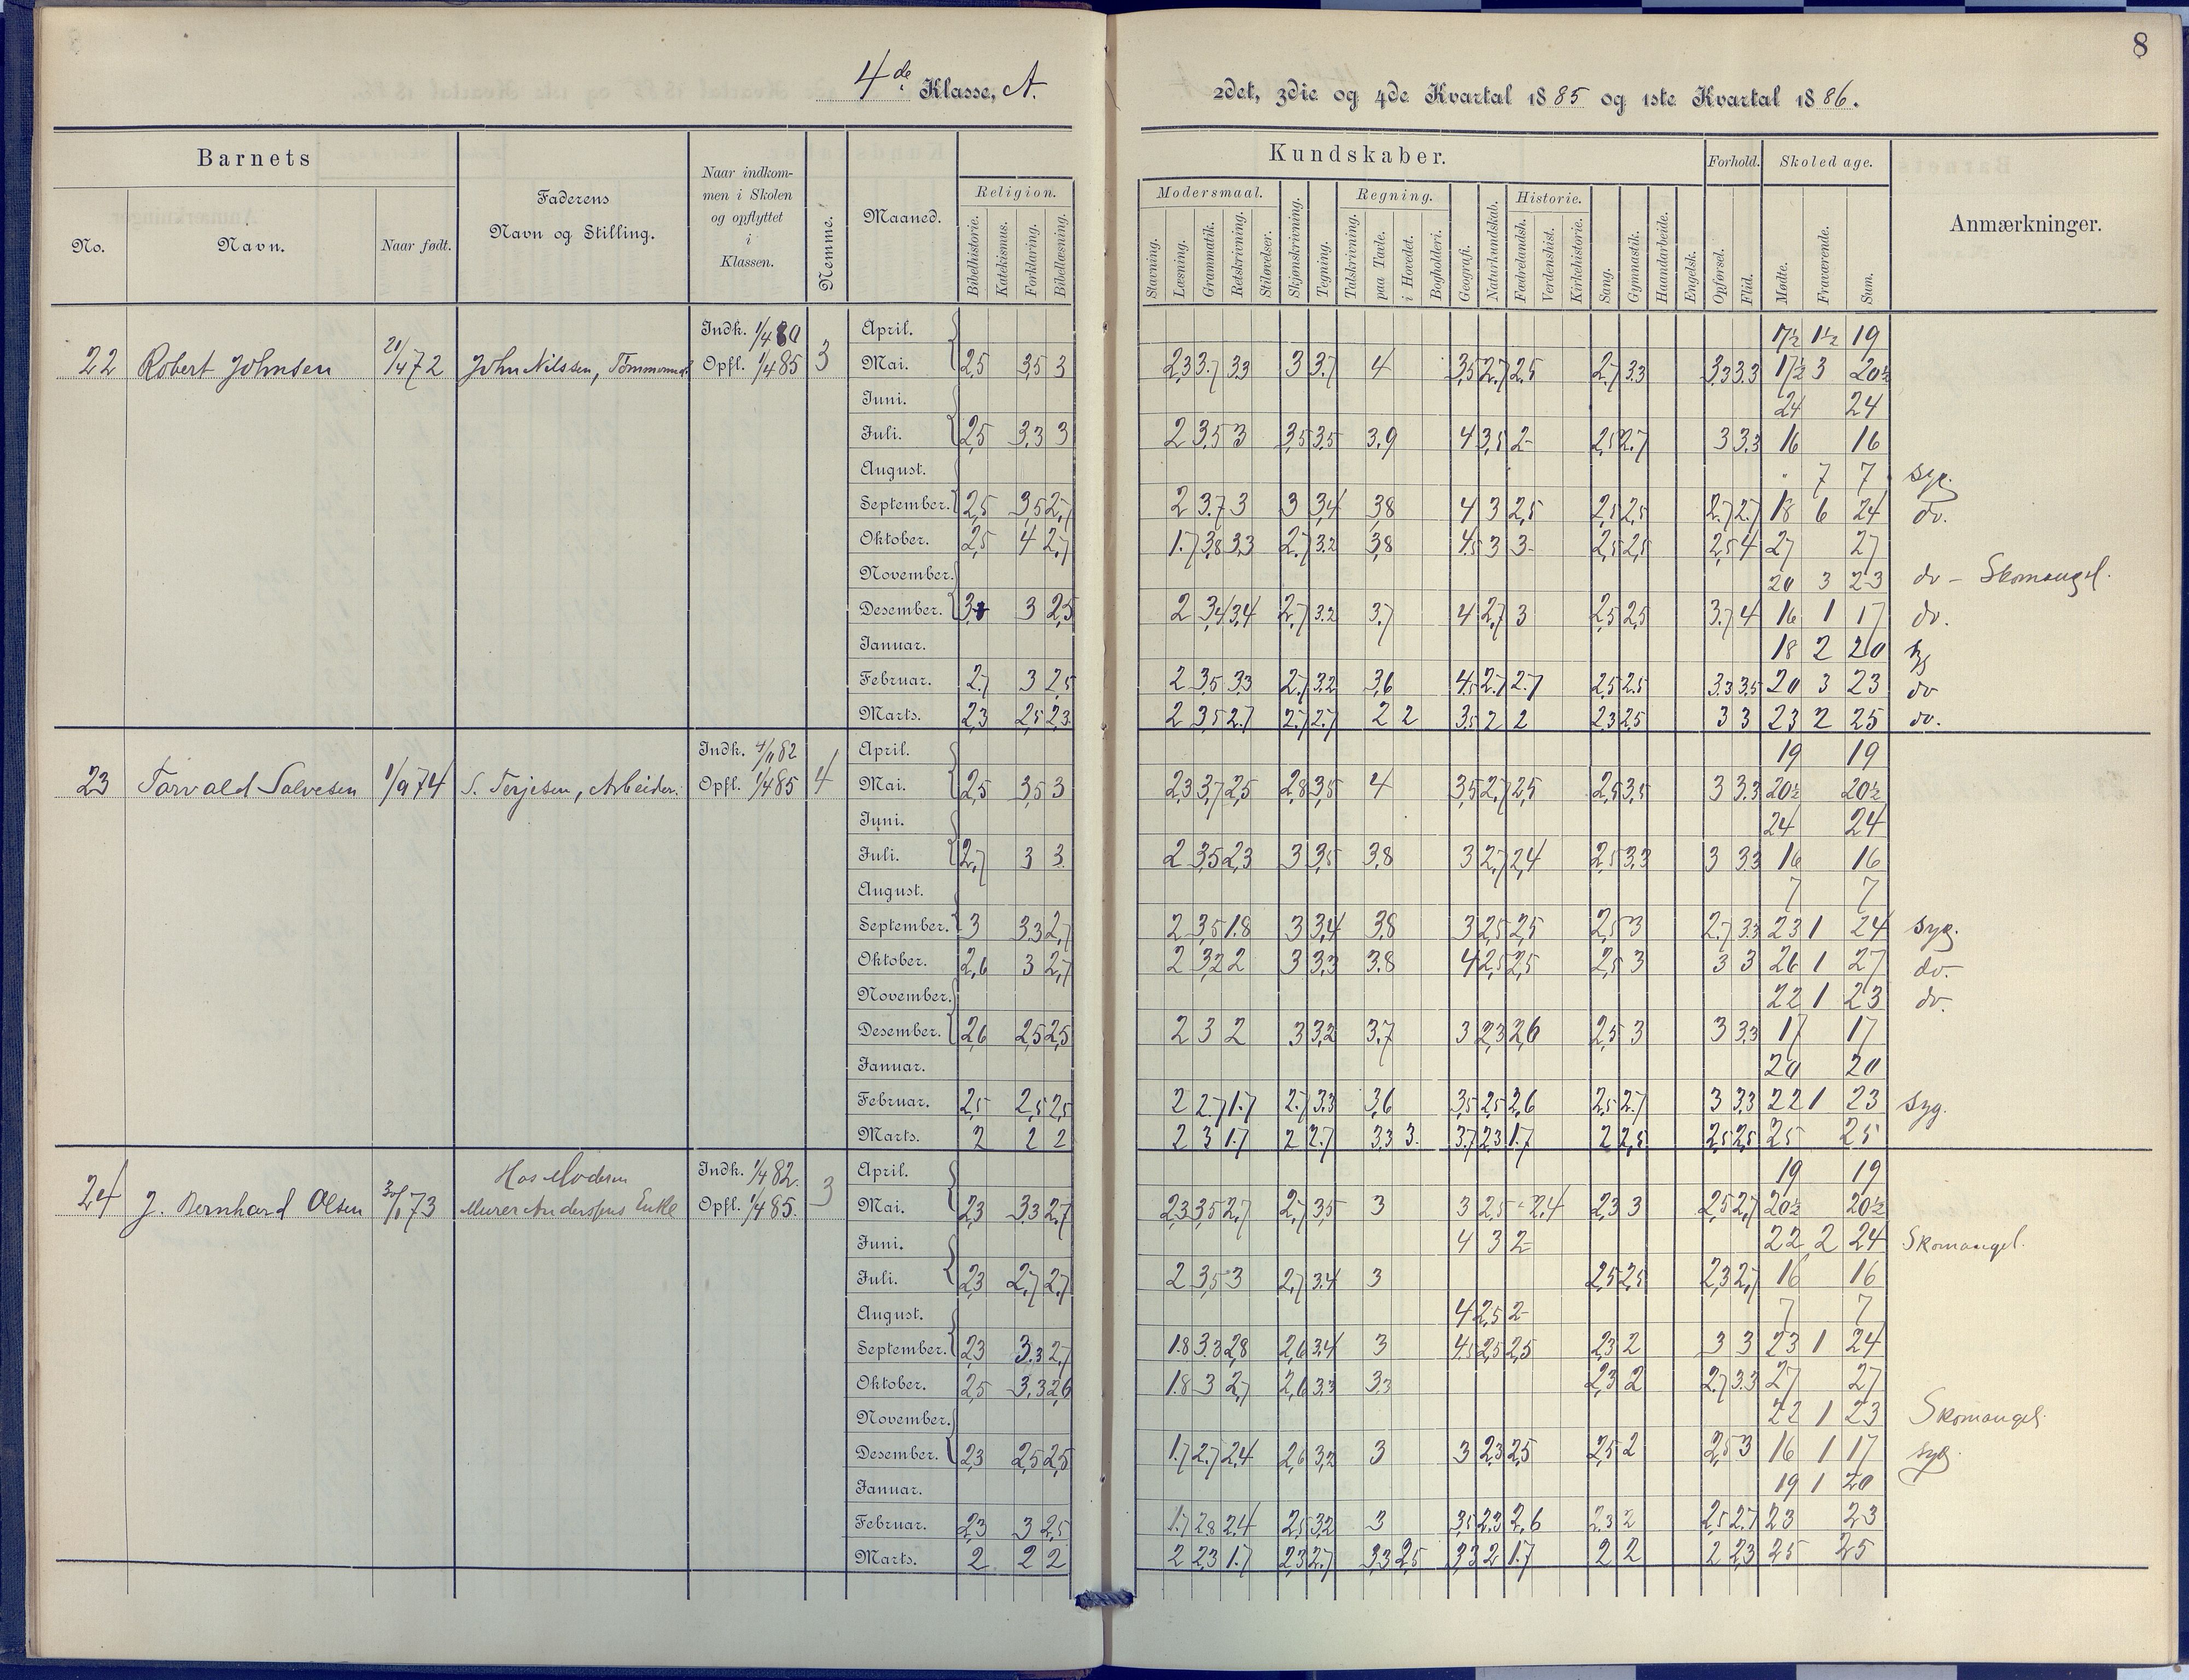 8
4de Klasse, A.
2det, 3die og 4de Kvartal 1885 og 1ste Kvartal 1886.
Barnets
No. Navn. Naar født.
Faderens Navn og Stilling.
Naar indkom-
men i Skolen
og opflyttet
i
Klassen.
Nemme.
Maaned.
Religion.
Bibelhistorie. Katekismus. Forklaring. Bibellæsning.
Kundskaber.
Modersmaal.
Stavning. Læsning. Grammatik. Retskrivning. Stiløvelser.
Skjønskrivning. Tegning.
Regning.
Talskrivning. paa Tavle. i Hovedet. Bogholderi.
Geografi. Naturkundskab.
Historie.
Fædrelandsh. Verdenshist. Kirkehistorie.
Sang. Gymnastik. Haandarbeide. Engelsk.
Forhold.
Opførsel. Flid.
Skoledage.
Mødte. Fraværende. Sum.
Anmærkninger.
22 Robert Johnsen 21/4 72 John Nilssen, Tømmermd. Indk. 1/4 80 Opfl. 1/4 85 3
April. 17½ 1½ 19
Mai. 2,5 3,5 3 2,3 3.7 3,3 3 3.7 4 3,5 2.7 2,5 2.7 3.3 3.3 3.3 17½ 3 20½
Juni. 24 24
Juli. 2,5 3,3 3 2 3,5 3 3,5 3,5 3.9 4 3,5 2 2,5 2.7 3 3.3 16 16
August. 7 7 syg.
September. 2,5 3,5 2,7 2 3.7 3 3 3,4 3,8 4 3 2,5 2,5 2,5 2.7 2.7 18 6 24 do.
Oktober. 2,5 4 2,7 1.7 3,8 3,3 2.7 3.2 3,8 4,5 3 3 2,5 2,5 2,5 4 27 27
November. 20 3 23 do - Skomangel.
Desember. 3 2,5 2 3,4 3,4 2,7 3.2 3.7 4 2,7 3 2,5 2,5 3.7 4 16 1 17 do.
Januar. 18 2 20
Februar. 2.7 3 2,5 2 3,5 3,3 2.7 3.2 3,6 4,5 2.7 2.7 2,5 2.5 3.3 3.5 20 3 23 do
Marts. 2,3 2,5 2,3 2 3,5 2.7 2.7 2.7 2 2 3,5 2 2 2,3 2,5 3 3 23 2 25 do.
23 Torvald Salvesen 1/9 74 S. Terjesen, Arbeider. Indk. 4/11 82 Opfl. 1/4 85 4
April. 19 19
Mai. 2,5 3,5 3 2,3 3,7 2,5 2,8 3,5 4 3,5 2,7 2,5 2,5 3,5 3 3.3 20½ 20½
Juni. 24 24
Juli. 2,7 3 3 2 3,5 2,3 3 3,5 3,8 3 2,7 2,4 2,5 3,3 3 3.3 16 16
August. 7 7
September. 3 3,3 2,7 2 3,5 1.8 3 3,4 3,8 3 2,5 2,5 2,5 3 2.7 3.3 23 1 24 syg.
Oktober. 2,6 3 2,7 2 3,2 2 3 3,3 3.8 4 2,5 2,5 2,5 3 3 3 26 1 27 do.
November. 22 1 23 do.
Desember. 2,6 2,5 2,5 2 3 2 3 3,2 3.7 3 2,3 2,6 2,5 3 3 3.3 17 17
Januar. 20 20
Februar. 2,5 2,5 2,5 2 2.7 1.7 2.7 3.3 3,6 3,5 2,5 2,6 2,5 2.7 3 3.3 22 1 23 syg.
Marts. 2 2 2 2 3 1.7 2 2.7 3,3 3. 3.7 2,3 1.7 2 2,5 2,5 2,5 25 25
24 J. Bernhard Olsen 73 Hos Moderen Murer Anderssens Enke Indk. 1/4 82. Opfl. 1/4 85. 3
April. 19 19
Mai. 2,3 3,3 2.7 2,3 3,5 2,7 2,7 3,5 3 3 2,5 2,4 2,3 3 2,5 2,7 20½ 20½
Juni. 4 3 2 22 2 24 Skomangel.
Juli. 2,3 2,7 2,7 2 3,5 3 2,7 3.4 3 2,5 2,5 2,3 2,7 16 16
August. 4 2,5 2 7 7
September. 2,3 3.3 2,7 1.8 3.3 2,8 2,6 3.4 3 4,5 2,5 2,5 2,3 2 3 3 23 1 24
Oktober. 2,5 3,3 2,6 1.8 3 2,7 2,6 3.3 3,3 2,3 2 2.7 3.3 27 27
November. 22 1 23 Skomangel.
Desember. 2,3 2,5 2,5 1.7 2.7 2,4 2,6 3,2 3 3 2,3 2,5 2,5 2 2,5 3 16 1 17 syg.
Januar. 19 1 20
Februar. 2,3 3 2,5 1.7 2,8 2,4 2,5 3,2 3 3,5 2,3 2,6 2,3 2 2,5 2.7 23 23
Marts. 2 2 2 2 2,3 1.7 2,3 2.7 3,3 2,5 3,3 2 1.7 2 2 2 2,3 25 25